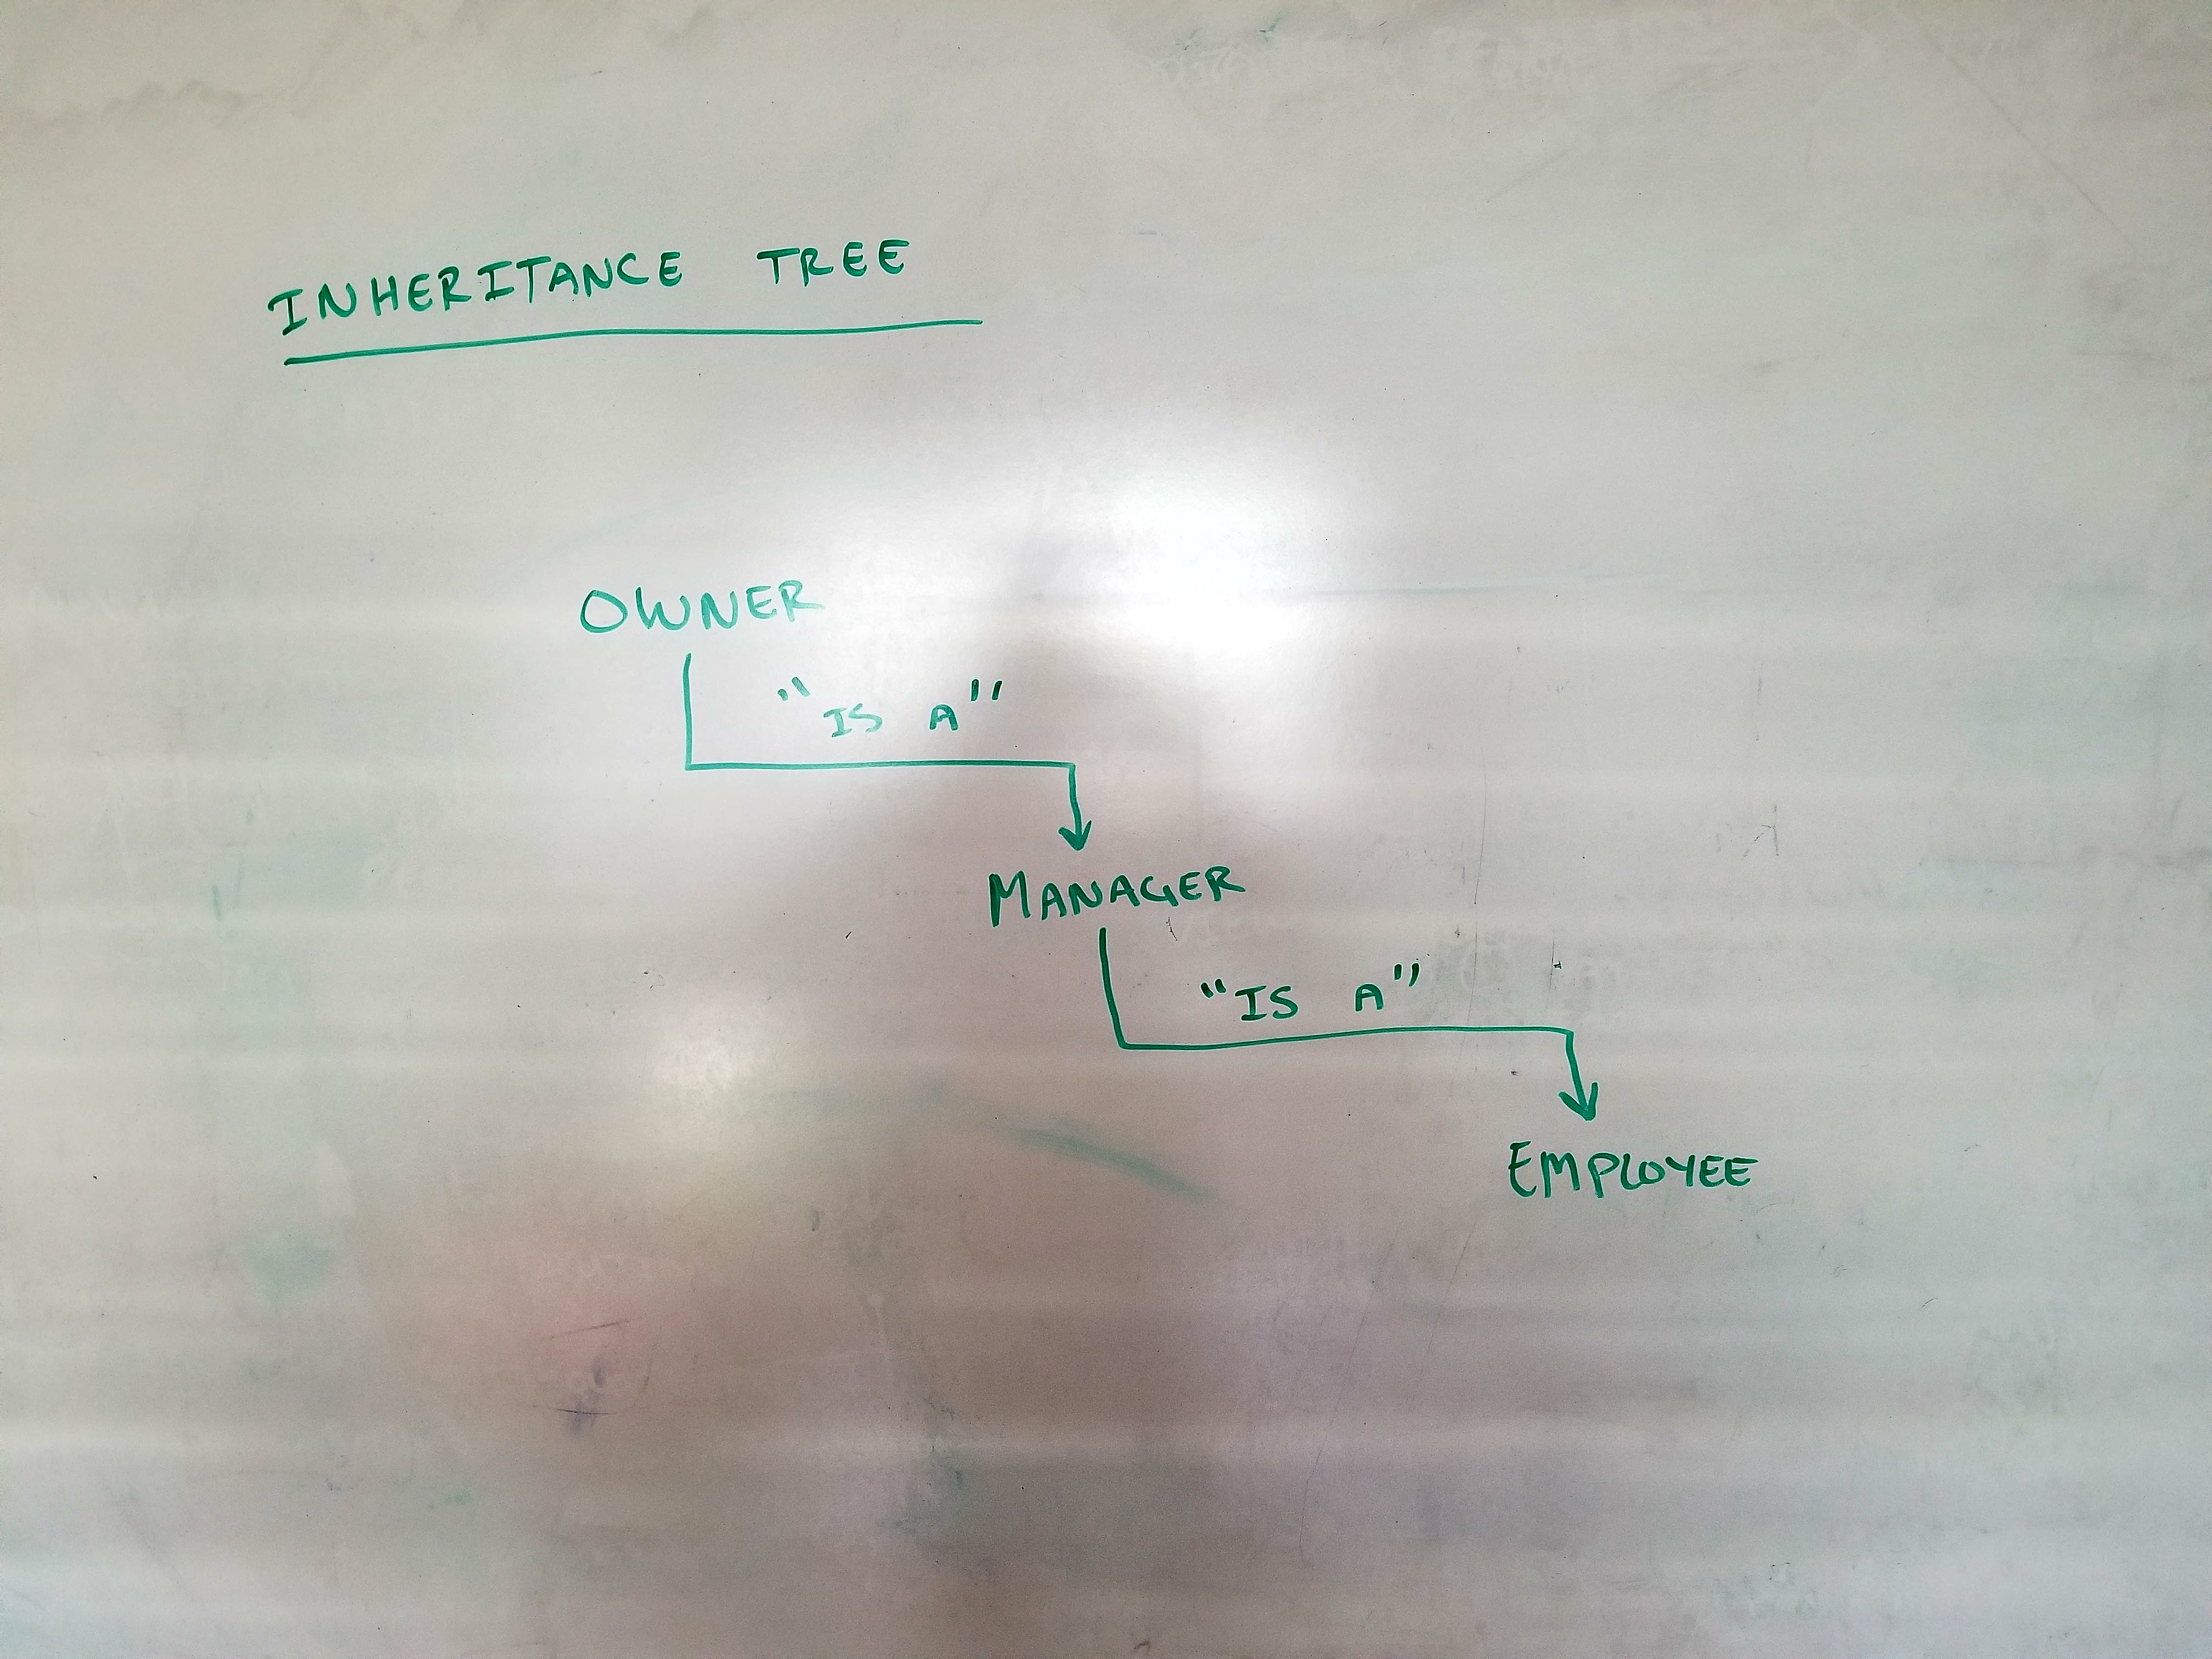 INHERITANCE TREE
OWNER
"IS A"
MANAGER
"IS A"
EMPLOYEE